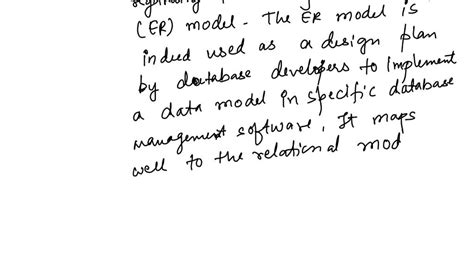 (ER) model. The ER model is
indeed used as a design plan
by database developers to implement
a data model in specific database
management software. It maps
well to the relational mod